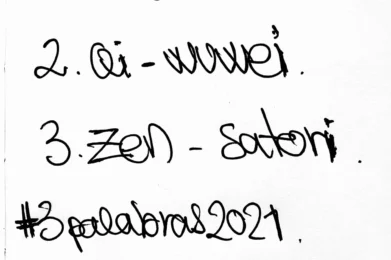 2. Qi - wuwei.
3. Zen - satori.
#3palabras2021.